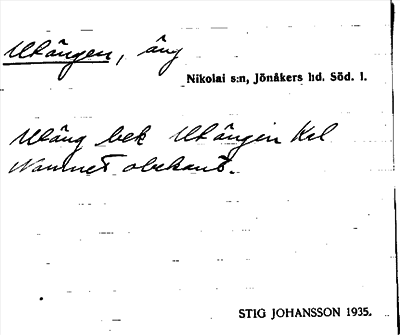 Utängen, äng
Nikolai s:n, Jönåkers hd. Söd. l.
Utäng bek Utängen Kal
Namnet obekant.
STIG JOHANSSON 1935.